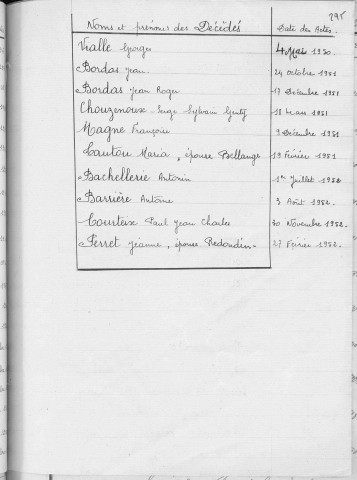 295
Noms et prénoms des Décédés Date des Actes.
Vialle Georges 4 Mai 1950.
Bordas Jean. 24 octobre 1951
Bordas Jean Roger 17 Décembre 1951
Chouzenoux Serge Sylvain Genty 18 Mars 1951
Magne Françoise 9 Décembre 1951
Lautou Maria, épouse Bellange 19 Février 1951
Bachellerie Antonin 1er Juillet 1952
Barrière Antoine 3 Août 1952.
Courteix Paul Jean Charles 30 Novembre 1952.
Perret Jeanne, épouse Redondin- 27 Février 1952.